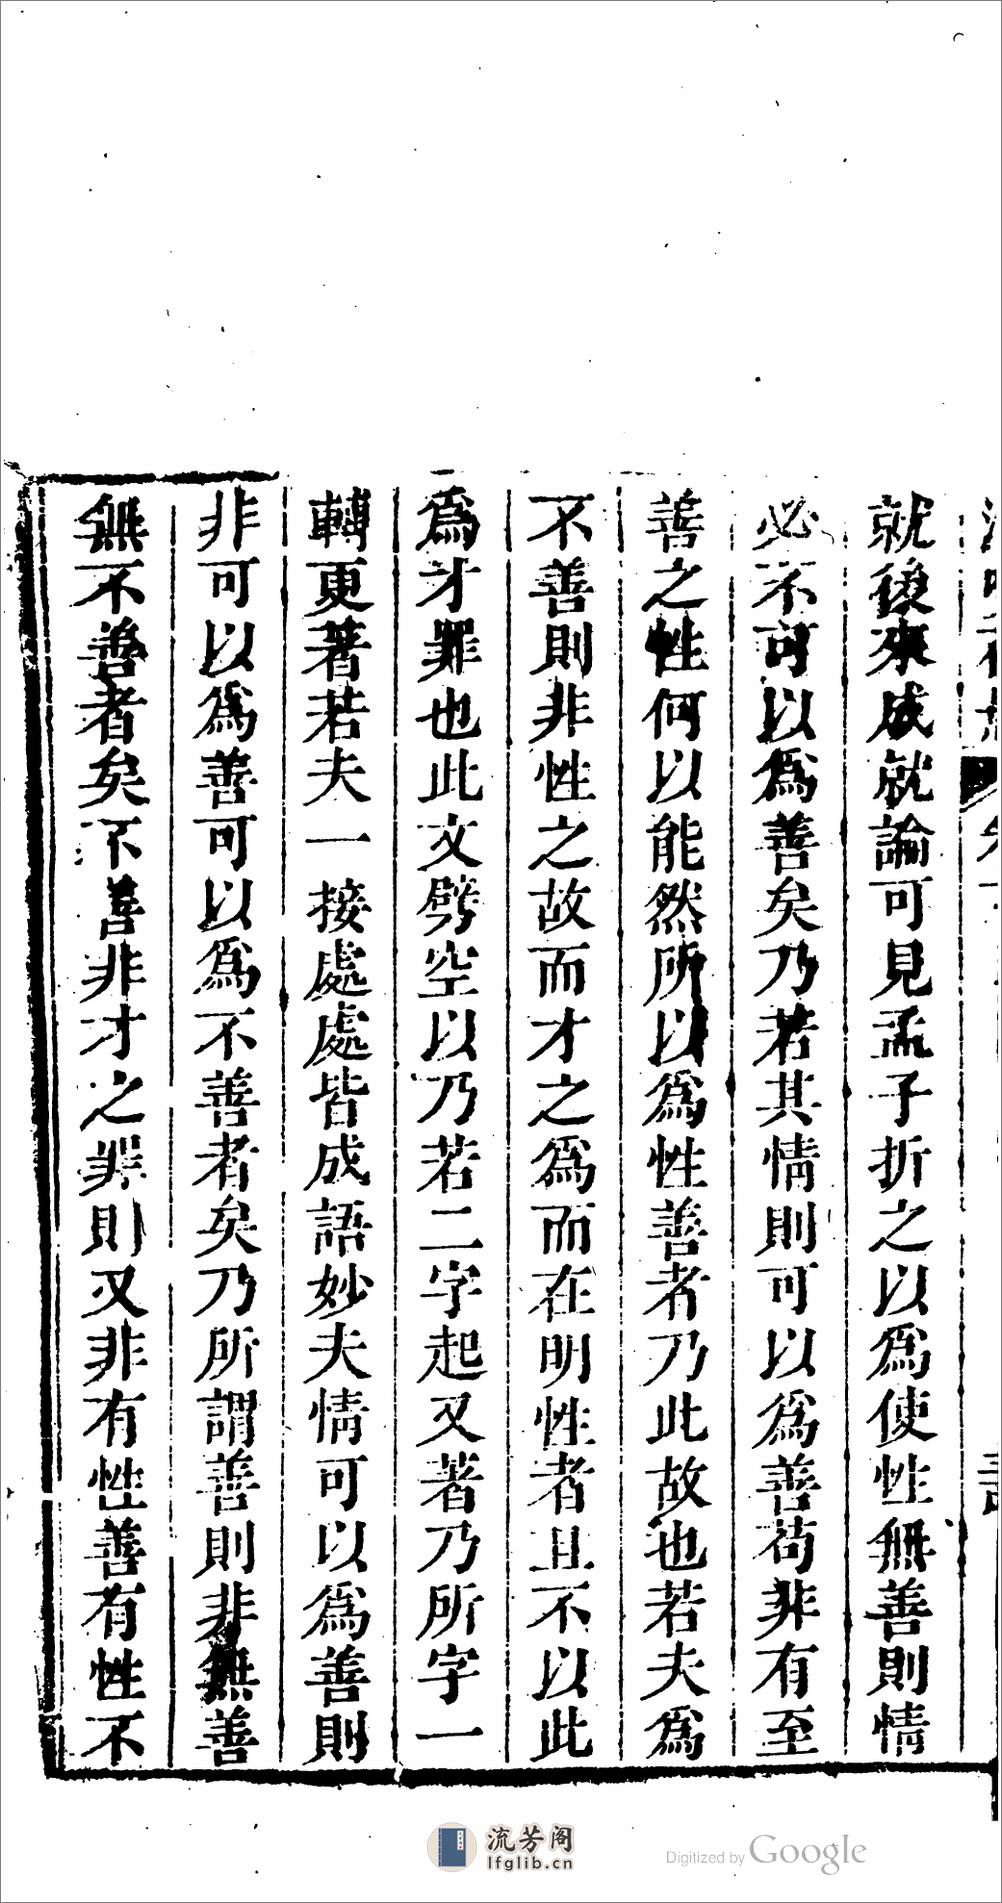 就後來成就論可見孟子折之以爲使性無善則情
必不可以爲善矣乃若其情則可以爲善苟非有至
善之性何以能然所以爲性善者乃此故也若夫爲
不善則非性之故而才之爲而在明性者且不以此
爲才罪也此文劈空以乃若二字起又著乃所字一
轉更著若夫一接處處皆成語妙夫情可以爲善則
非可以爲善可以爲不善者矣乃所謂善則非無善
無不善者矣不善非才之罪則又非有性善有性不
流芳阁
lfglib.cn
Digitized by Google